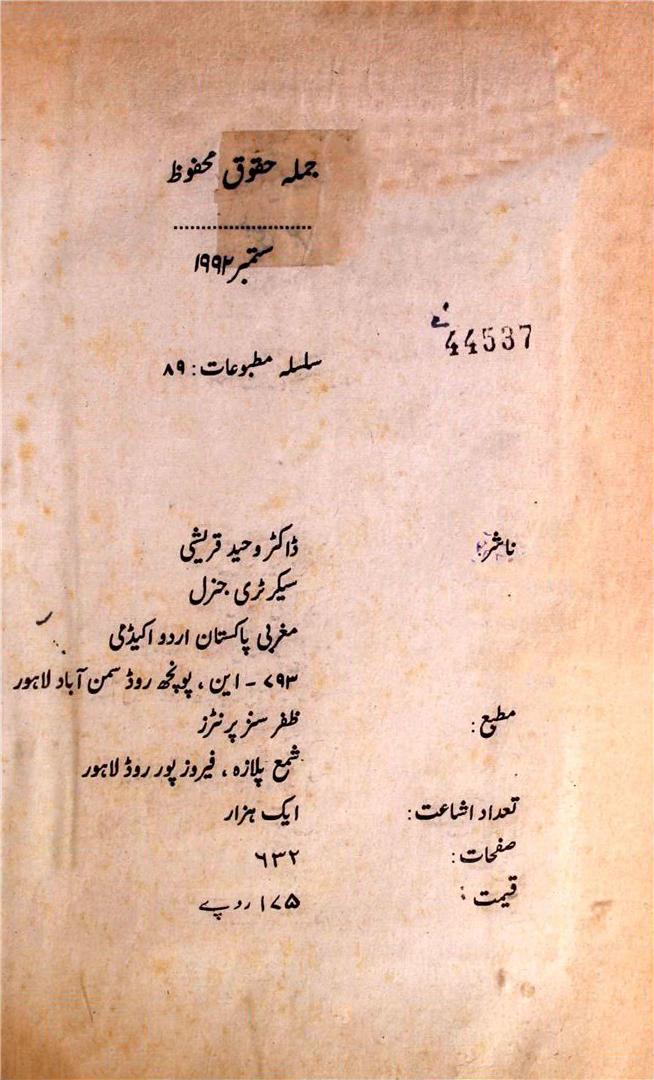 جملہ حقوق محفوظ
ستمبر ۱۹۹۲
44537
سلسلہ مطبوعات: ۸۹
ناشر: ڈاکٹر وحید قریشی
سیکرٹری جنرل
مغربی پاکستان اردو اکیڈمی
۷۹۳ - این ، پونچھ روڈ سمن آباد لاہور
مطبع: ظفر سنز پرنٹرز
شمع پلازہ ، فیروز پور روڈ لاہور
تعداد اشاعت: ایک ہزار
صفحات: ۶۳۲
قیمت: ۱۷۵ روپے